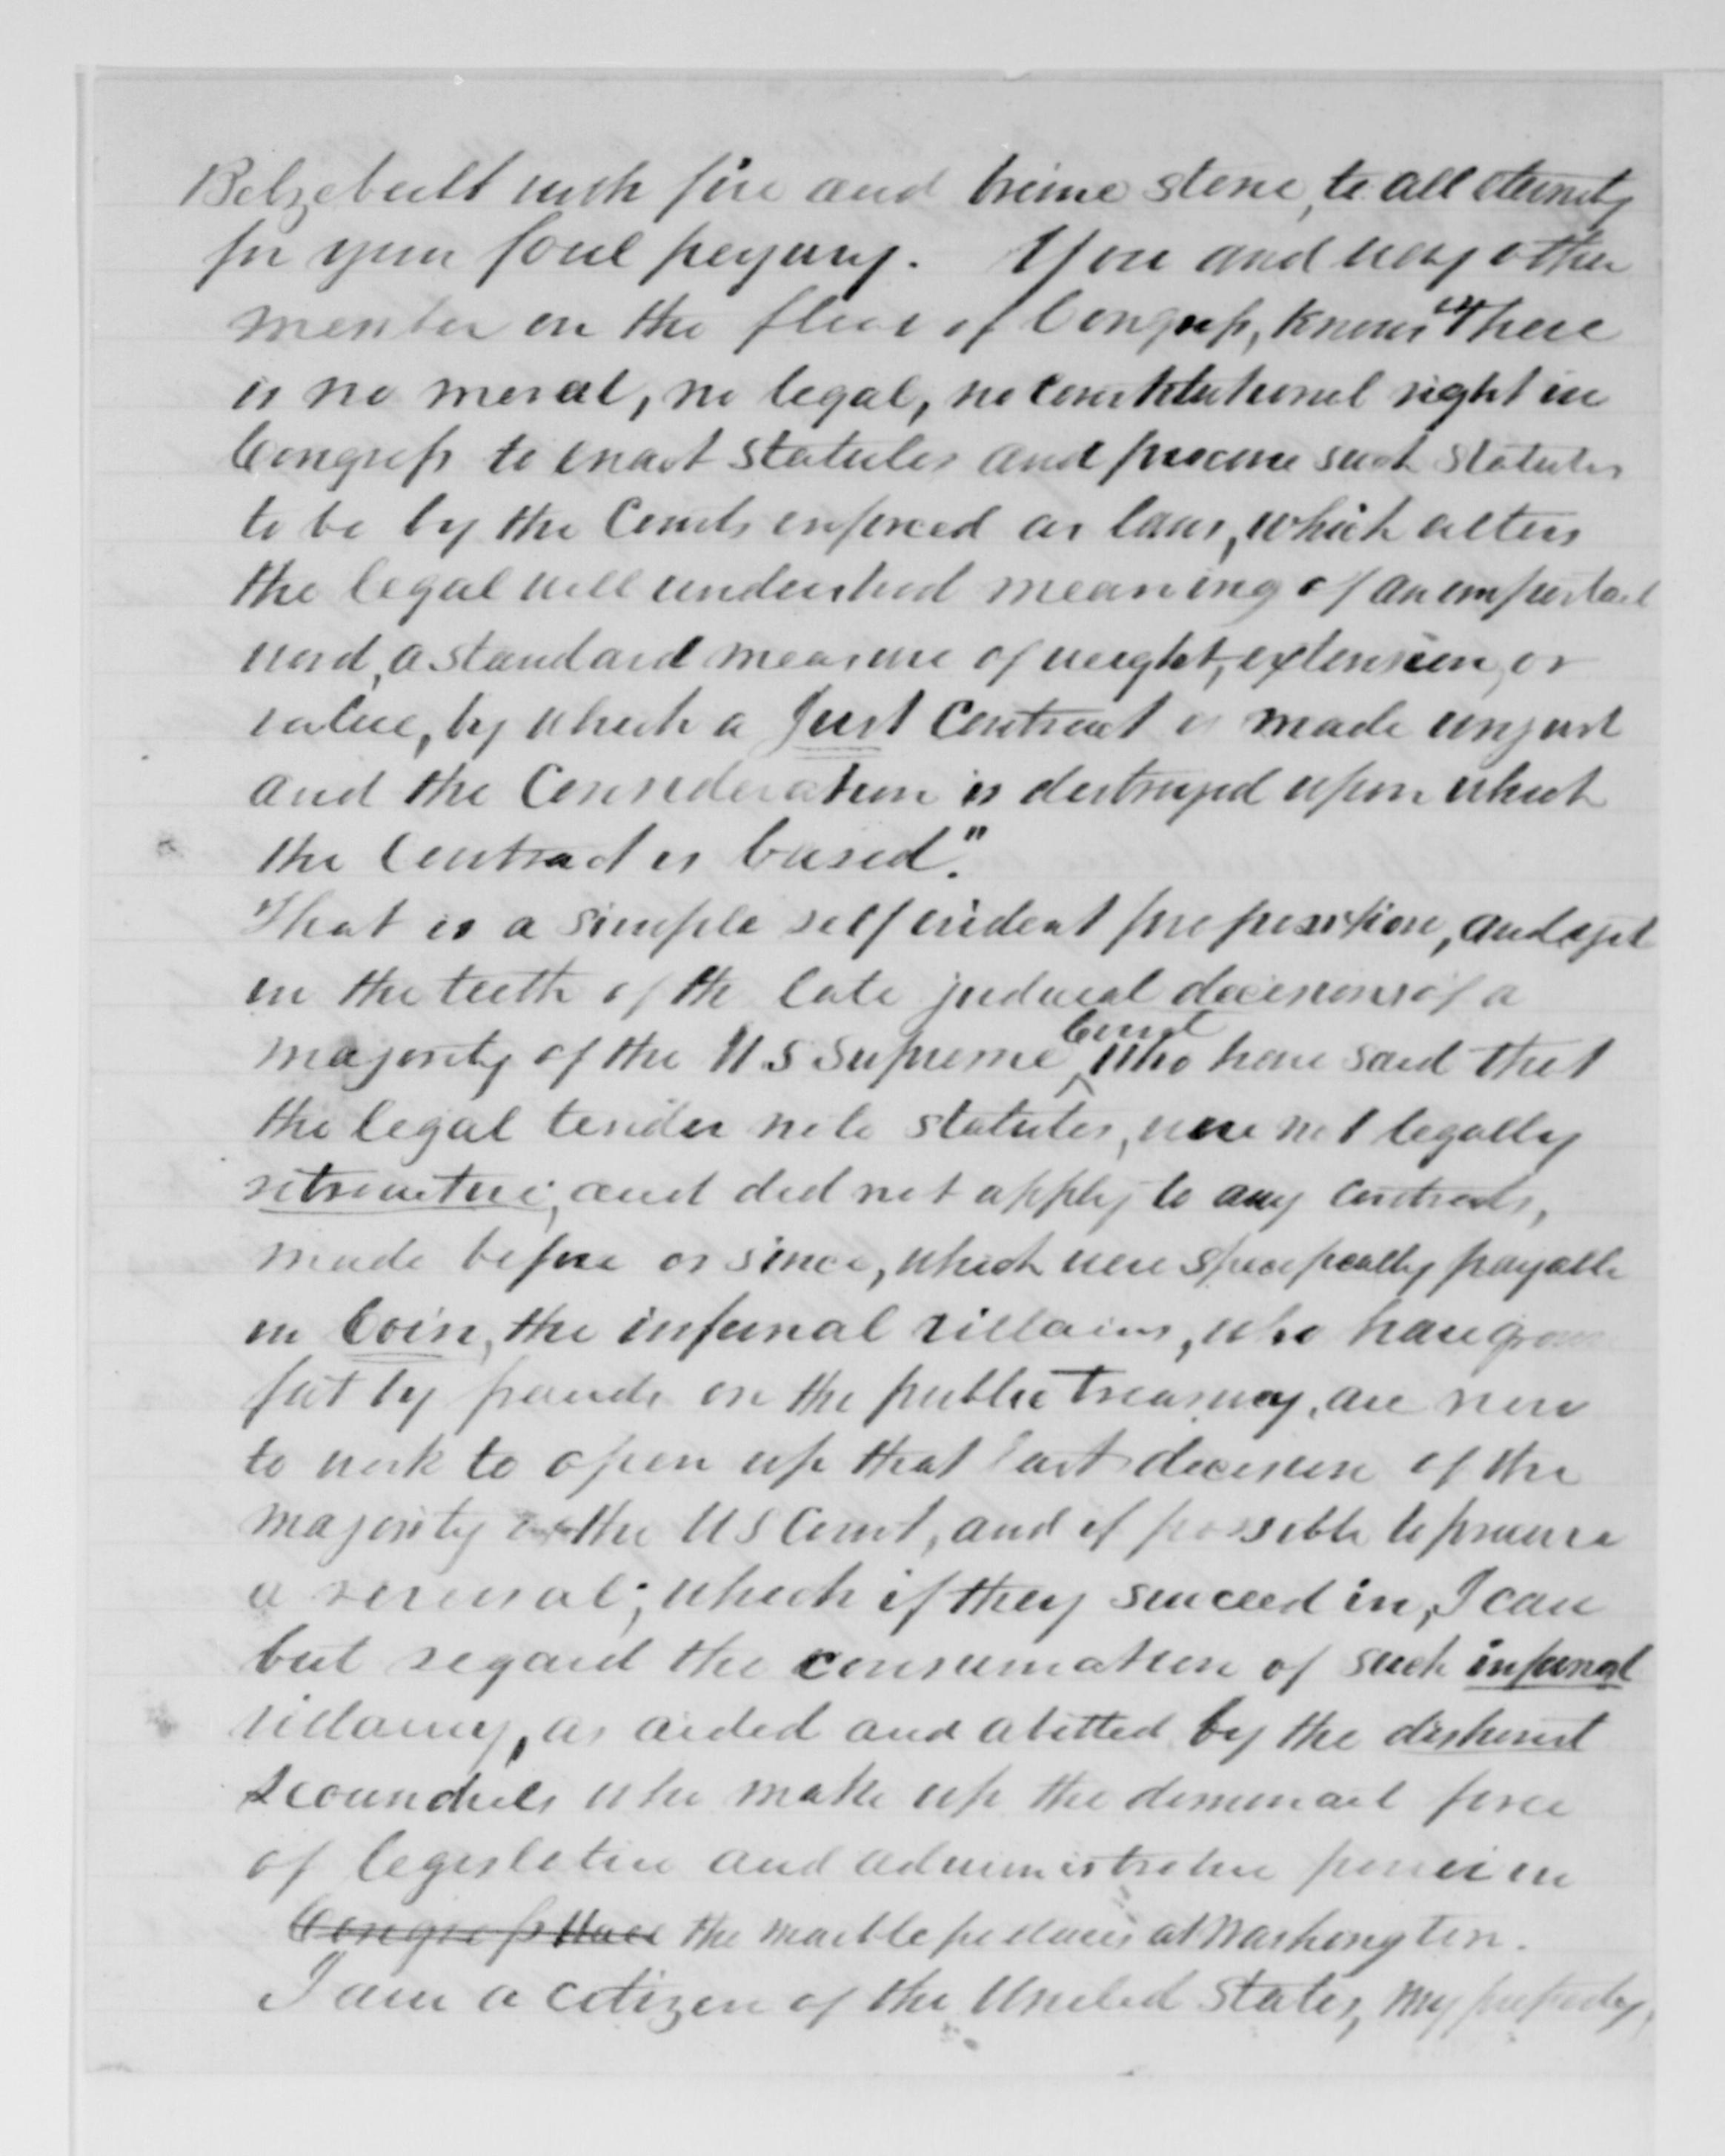 Belzebuth with fire and brimestone, to all eternity
for your foul perjury. You and every other
member on the floor of Congress, knows "There
is no moral, no legal, no constitutional right in
Congress to enact statutes and procure such statutes
to be by the Courts enforced as laws, which alters
the legal well understood meaning of an important
word, a standard measure of weight, extension, or
value, by which a just contract is made unjust
and the Consideration is destroyed upon which
the Contract is based."
That is a simple self evident proposition, and yet
in the teeth of the late judicial decisions of a
majority of the U S Supreme Court who have said that
the legal tender note statutes, were not legally
retroactive, and did not apply to any contracts,
made before or since, which were specifically payable
in Coin, the infernal villains, who have grown
fat by frauds on the public treasury, are now
to work to open up that last decision of the
majority of the U S Court, and if possible to procure
a reversal; which if they succeed in, I can
but regard the consumation of such infernal
villainy, as aided and abetted by the dishonest
scoundrels who make up the dominant force
of legislative and administrative power in
Congress Hall the marble palaces at Washington.
I am a citizen of the United States, my property,